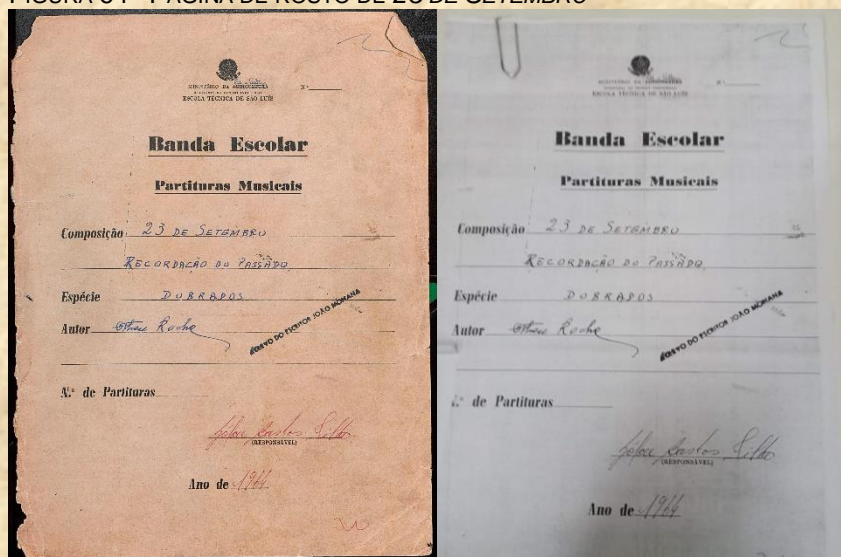 FIGURA 64 - PÁGINA DE ROSTO DE 23 DE SETEMBRO
MINISTÉRIO DA
ESCOLA TÉCNICA DE SÃO LUÍS
Nº
Banda Escolar
Partituras Musicais
Composição 23 DE SETEMBRO
RECORDAÇÃO DO PASSADO
Espécie DOBRADOS
Autor Rocha
DO ESCRITOR JOÃO MOHANA
N.º de Partituras
(RESPONSÁVEL)
Ano de 1964
MINISTÉRIO DA
ESCOLA TÉCNICA DE SÃO LUÍS
Nº
Banda Escolar
Partituras Musicais
Composição 23 DE SETEMBRO
RECORDAÇÃO DO PASSADO
Espécie DOBRADOS
Autor Rocha
DO ESCRITOR JOÃO MOHANA
de Partituras
(RESPONSÁVEL)
Ano de 1964